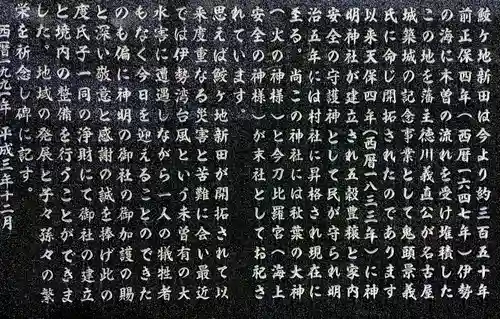 鮫ケ地新田は今より約三百五十年
前正保四年(西暦一六四七年)伊勢
の海に木曽の流れを受け堆積した
この地を藩主徳川義直公が名古屋
城築城の記念事業として鬼頭景義
氏に命じ開拓されたのであります
以来天保四年(西暦一八三三年)に神
明神社が建立され五穀豊穣と家内
安全の守護神として民が守られ明
治五年には村社に昇格され現在に
至る。尚この神社には秋葉の大神
(火の神様)と今刀比羅宮(海上
安全の神様)が末社としてお祀さ
れています。
思えば鮫ケ地新田が開拓されて以
来度重なる災害と苦難に会い最近
では伊勢湾台風という未曽有の大
水害に遭遇しながら一人の犠牲者
もなく今日を迎えることのできた
のも偏に神明の御社の御加護の賜
と深い敬意と感謝の誠を捧げ此の
度氏子一同の浄財にて御社の建立
と境内の整備を行うことができま
した。地域の発展と子々孫々の繁
栄を祈念し碑に記す。
西暦一九九一年 平成三年十二月